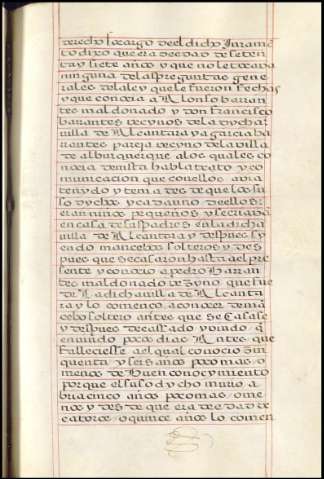 derecho so cargo del dicho Juramē
to dixo que era de edad de seten
ta y siete años y que no le tocava
ninguna de las preguntas gene
rales de la ley que le fueron fechas
y que conocia a Alonso barran
tes maldonado y don francisco
barantes vecinos de la dicha
villa de Alcantara y a garcia ba
rrantes pareja vecino de la villa
de alburquerque a los quales co
nocia de vista habla trato y co
municacion que con ellos avia
tenydo y tenia desde que los su
so dychos y cada uno de ellos
eran niños pequeños y se criavā
en casa de sus padres en la dicha
villa de Alcantara y despues sy
endo mancebos solteros y des
pues que se casaron hasta el pre
sente y conocio a pedro barran
tes maldonado vezyno que fue
de la dicha villa de Alcanta
ra y lo començo a conocer de mā
cebo soltero antes que se casase
y despues de casado y viudo q̄
enviudo pocos dias Antes que
falleciesse al qual conocio cin
quenta y seis años poco mas o
menos de buen conocimyento
porque el suso dycho murio a
bria cinco años poco mas o me
nos y desde que era de edad de
catorce o quince años lo comen